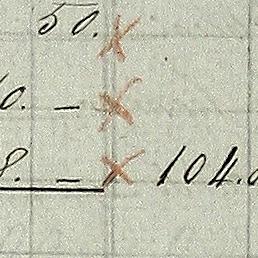 50. x
0. – x
8. – x 104.